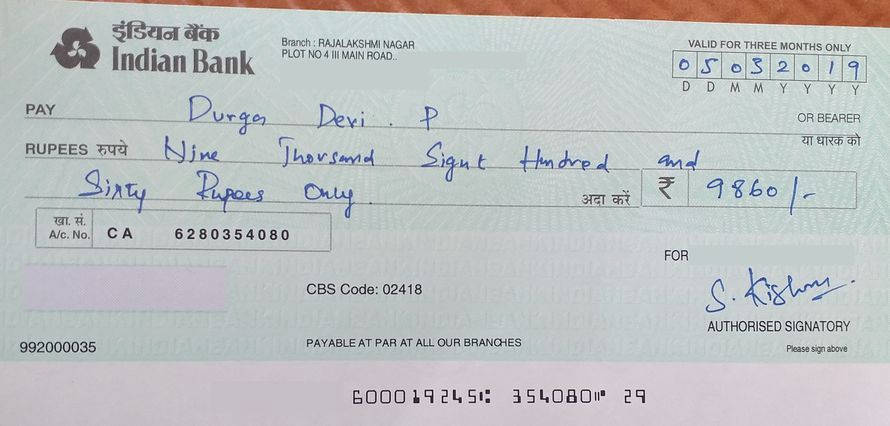 इंडियन बैंक
Indian Bank
Branch : RAJALAKSHMI NAGAR
PLOT NO 4 III MAIN ROAD..
VALID FOR THREE MONTHS ONLY
0 5 0 3 2 0 1 9
D D M M Y Y Y Y
PAY Durga Devi . P OR BEARER
या धारक को
RUPEES रुपये Nine Thousand Eight Hundred and
Sixty Rupees Only अदा करें ₹ 9860/-
खा. सं.
A/c. No. CA 6280354080
FOR
CBS Code: 02418
S. Kishor
AUTHORISED SIGNATORY
Please sign above
992000035
PAYABLE AT PAR AT ALL OUR BRANCHES
600019245⑆ 354080⑈ 29